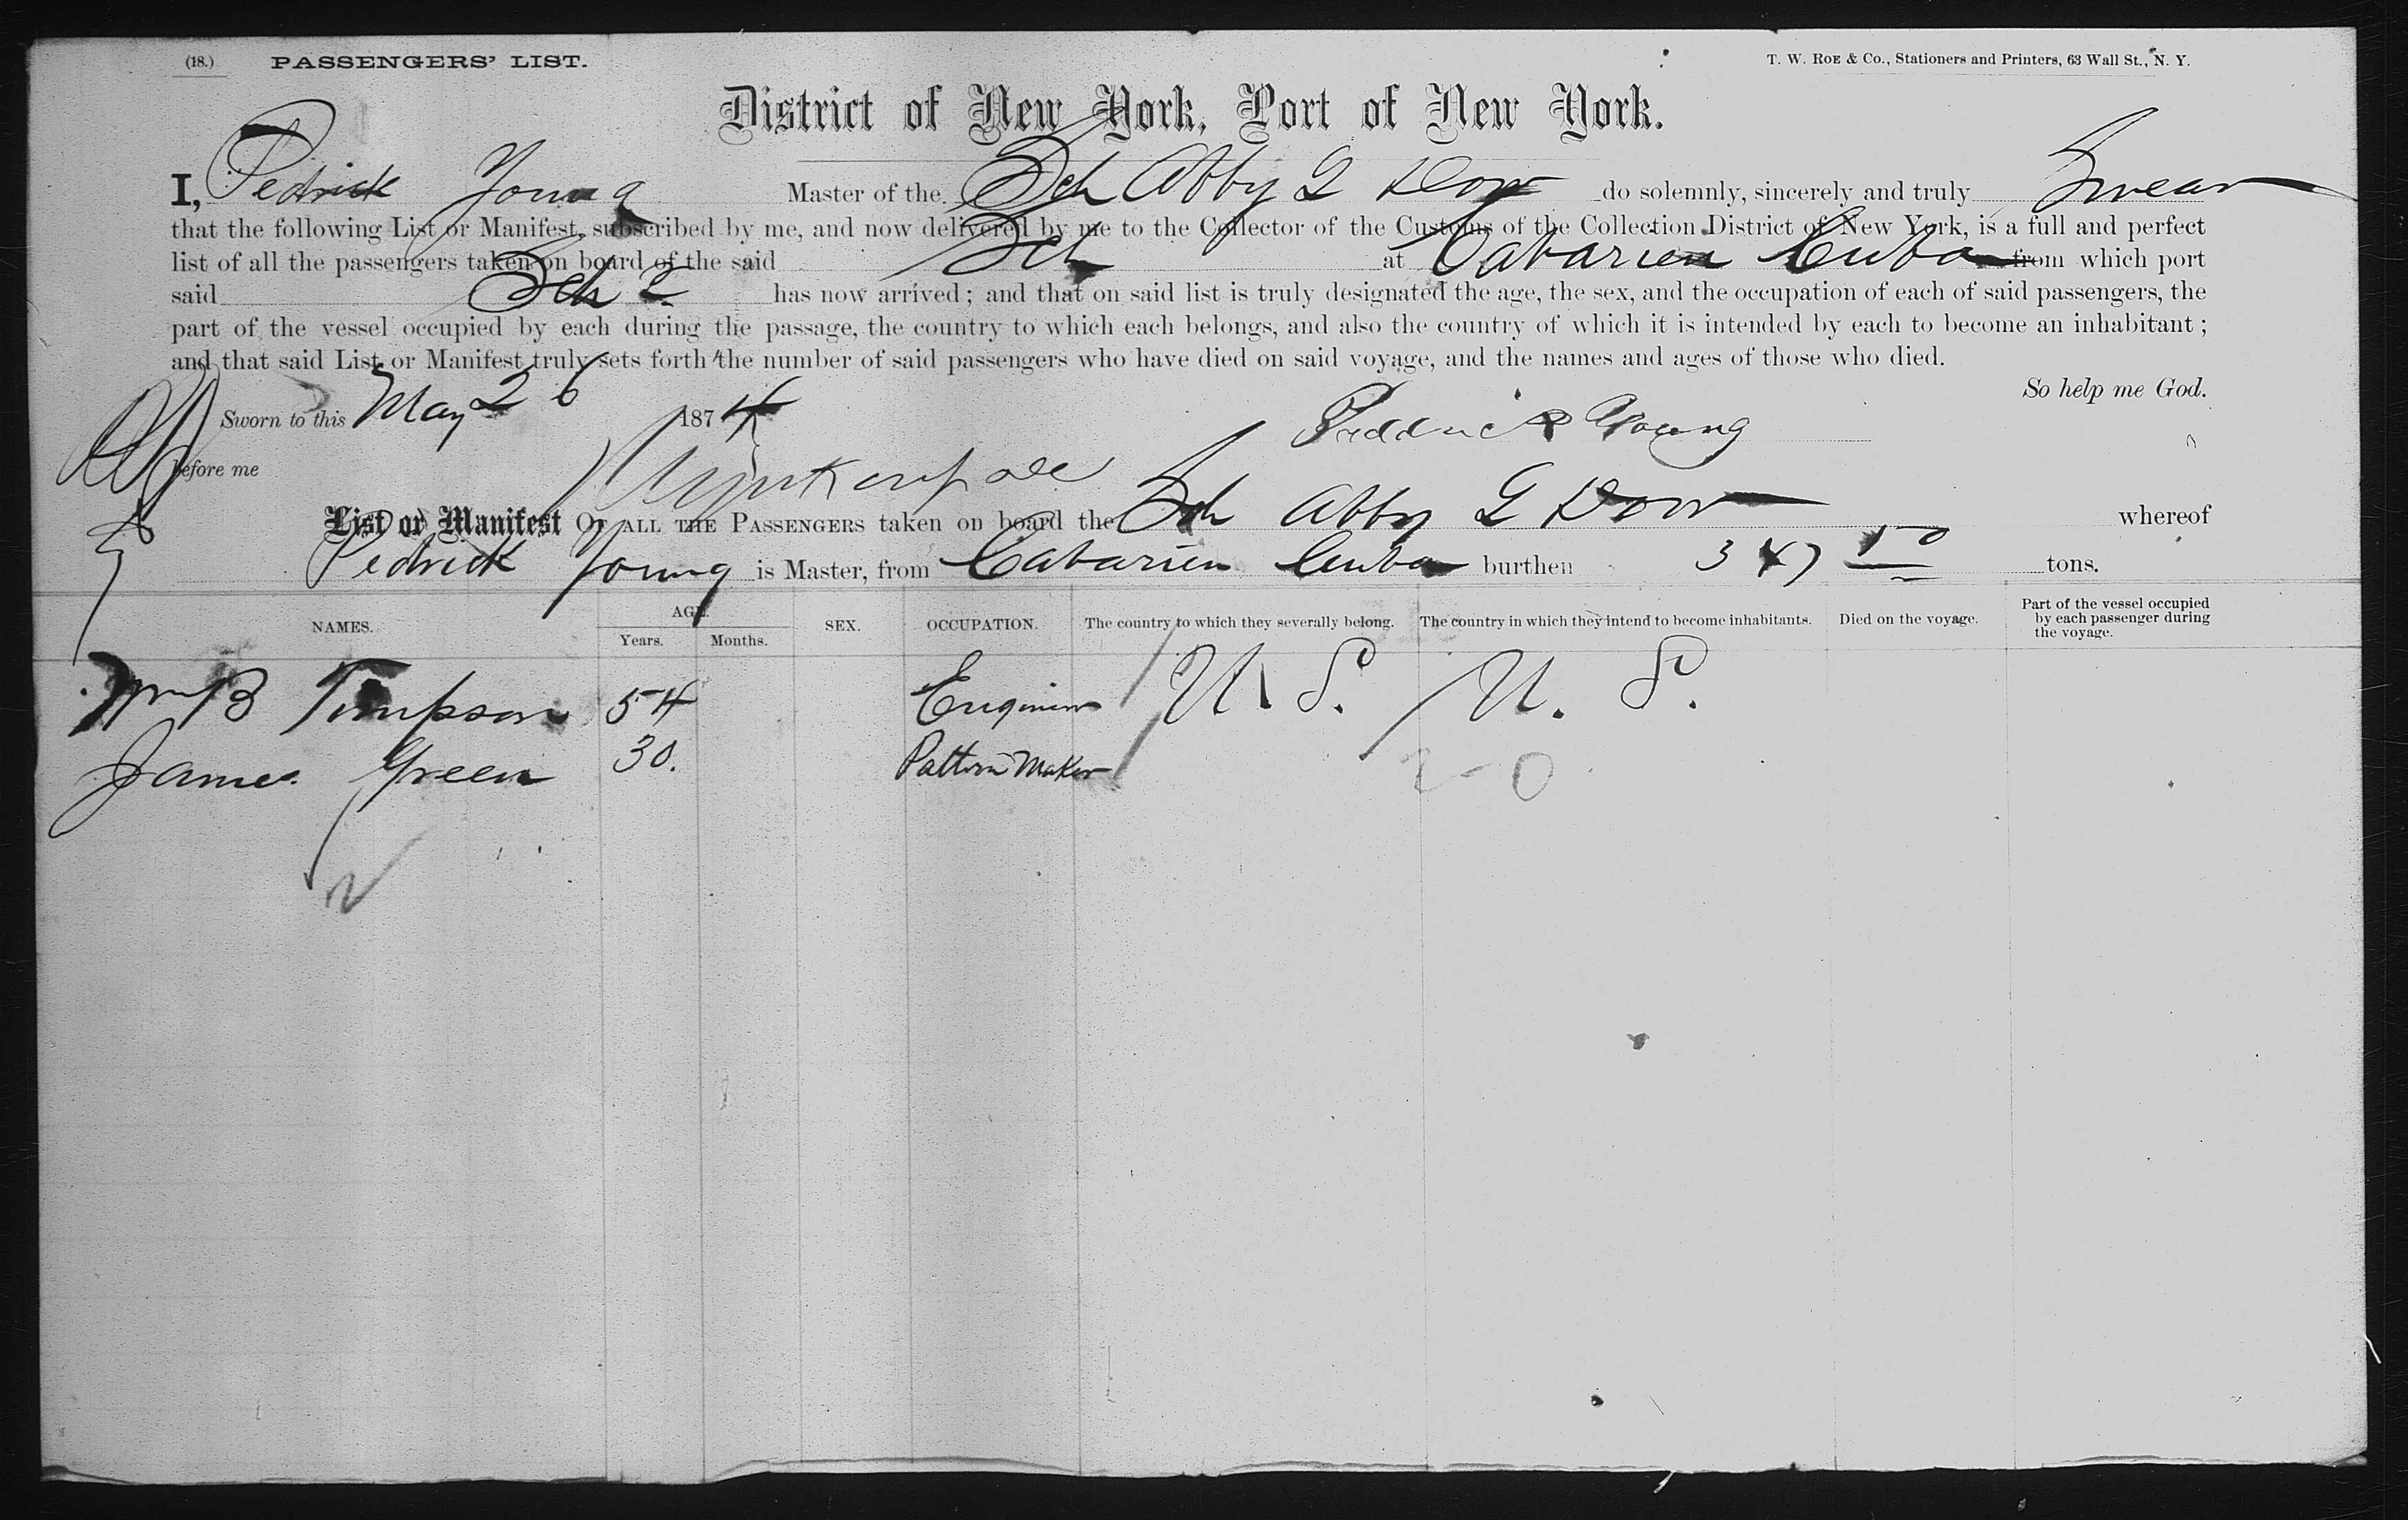 (18.) PASSENGERS' LIST. T. W. ROE & Co., Stationers and Printers, 63 Wall St., N. Y.
District of New York, Port of New York.
I, Pedrick Young Master of the Sch Abby G Dow do solemnly, sincerely and truly Swear
that the following List or Manifest, subscribed by me, and now delivered by me to the Collector of the Customs of the Collection District of New York, is a full and perfect
list of all the passengers taken on board of the said Sch at Cabarien Cuba from which port
said Sch has now arrived; and that on said list is truly designated the age, the sex, and the occupation of each of said passengers, the
part of the vessel occupied by each during the passage, the country to which each belongs, and also the country of which it is intended by each to become an inhabitant;
and that said List or Manifest truly sets forth the number of said passengers who have died on said voyage, and the names and ages of those who died.
So help me God.
Sworn to this May 26 1874 Young
before me
List or Manifest OF ALL THE PASSENGERS taken on board the Sch Abby G Dow whereof
Pedrick Young is Master, from Cabarien Cuba burthen 347 50 tons.
NAMES. AGE. Years. Months. SEX. OCCUPATION. The country to which they severally belong. The country in which they intend to become inhabitants. Died on the voyage. Part of the vessel occupied by each passenger during the voyage.
Wm B Timpson 54 Engineer U. S. U. S.
James Green 30. Pattern Maker
2-0
2